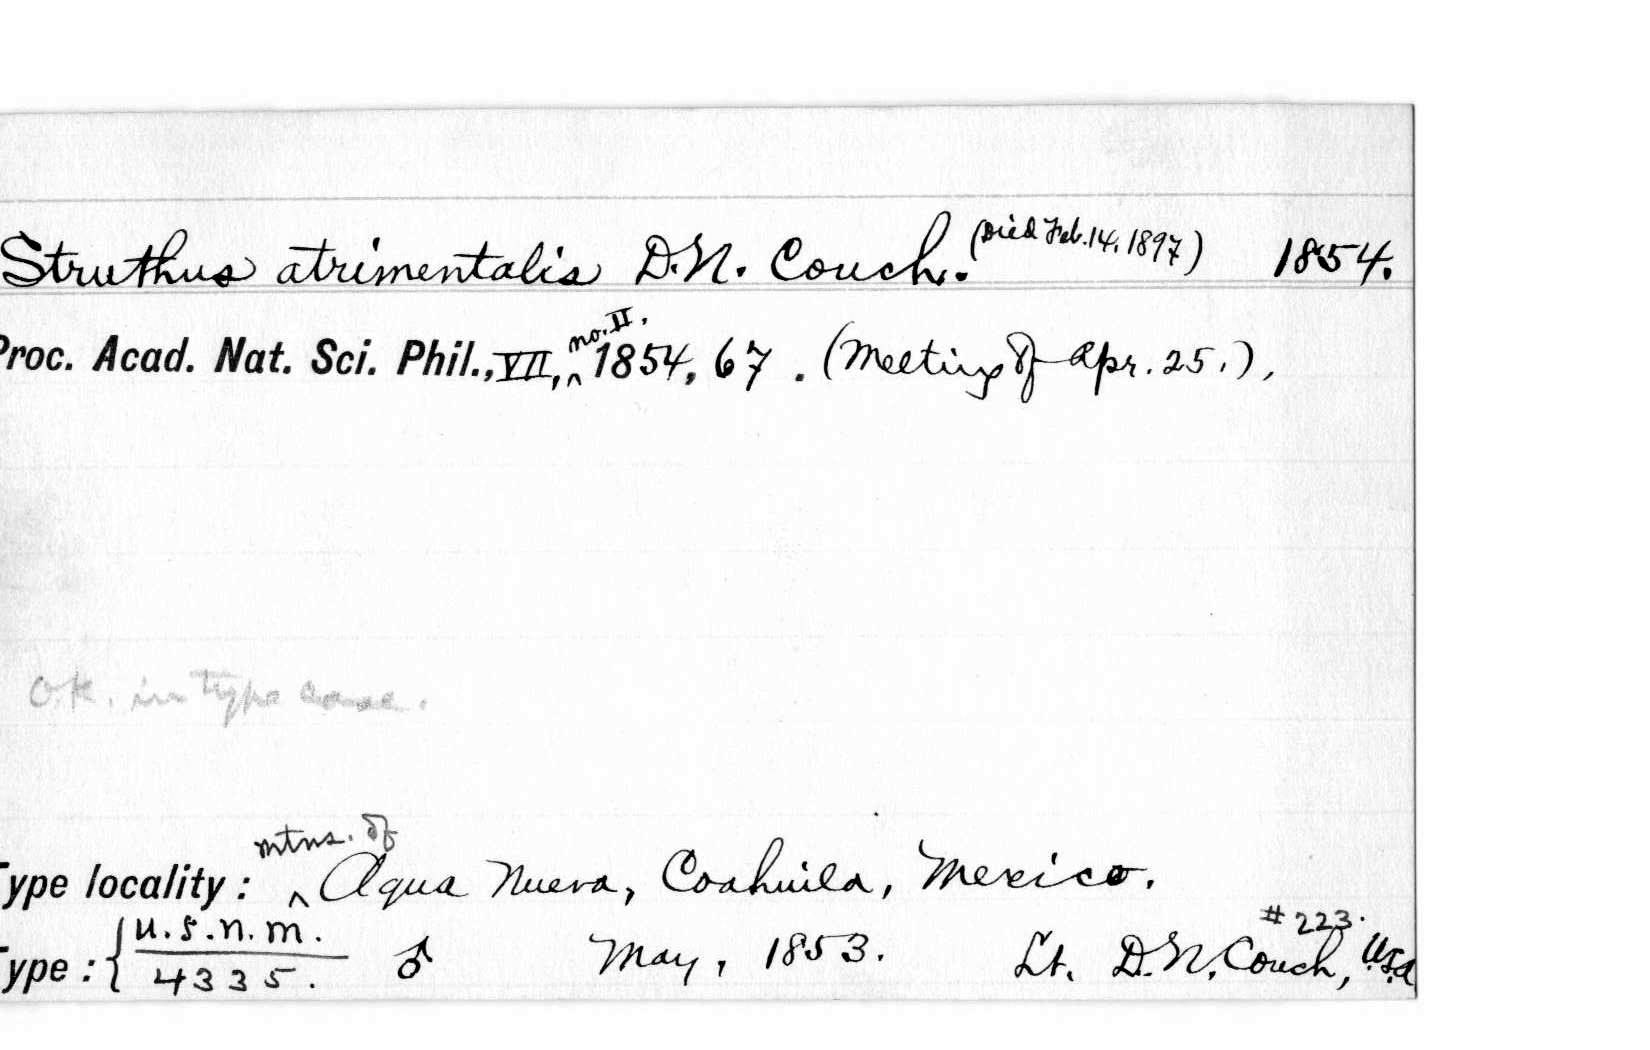 Struthus atrimentalis D.N. Couch. (Died Feb. 14, 1897) 1854.
Proc. Acad. Nat. Sci. Phil., VII, no. II. 1854, 67. (Meeting of Apr. 25.),
O.K. in type case.
Type locality: mtns. of Agua Nueva, Coahuila, Mexico.
Type: { U.S.N.M. #223.
4335. ♂ May, 1853. Lt. D.N. Couch, U.S.A